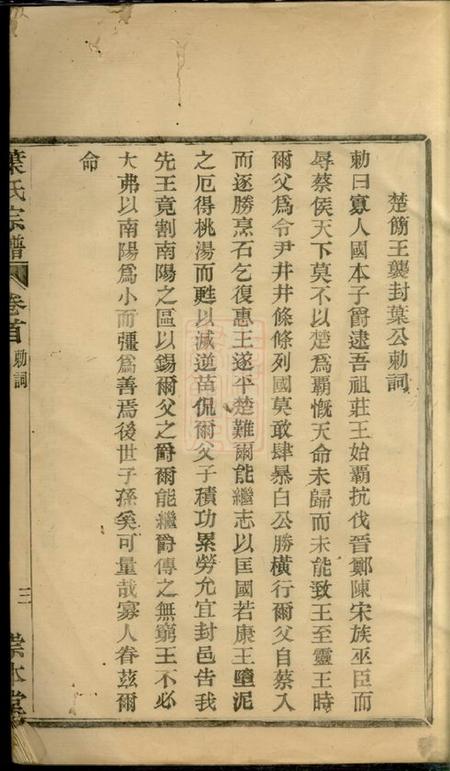 楚簡王襲封葉公勅詞
勅曰寡人國本子爵逮吾祖莊王始霸抗伐晉鄭陳宋族巫臣而
辱蔡侯天下莫不以楚爲霸慨天命未歸而未能致王至靈王時
爾父爲令尹井井條條列國莫敢肆暴白公勝橫行爾父自蔡入
而逐勝烹石乞復惠王遂平楚難爾能繼志以匡國若康王墮泥
之厄得桃湯而甦以滅逆苗侃爾父子積功累勞允宜封邑告我
先王竟割南陽之區以錫爾父之爵爾能繼爵傳之無窮王不必
大弗以南陽爲小而彊爲善焉後世子孫奚可量哉寡人眷茲爾
命
葉氏宗譜
卷首
勅詞
三
崇本堂